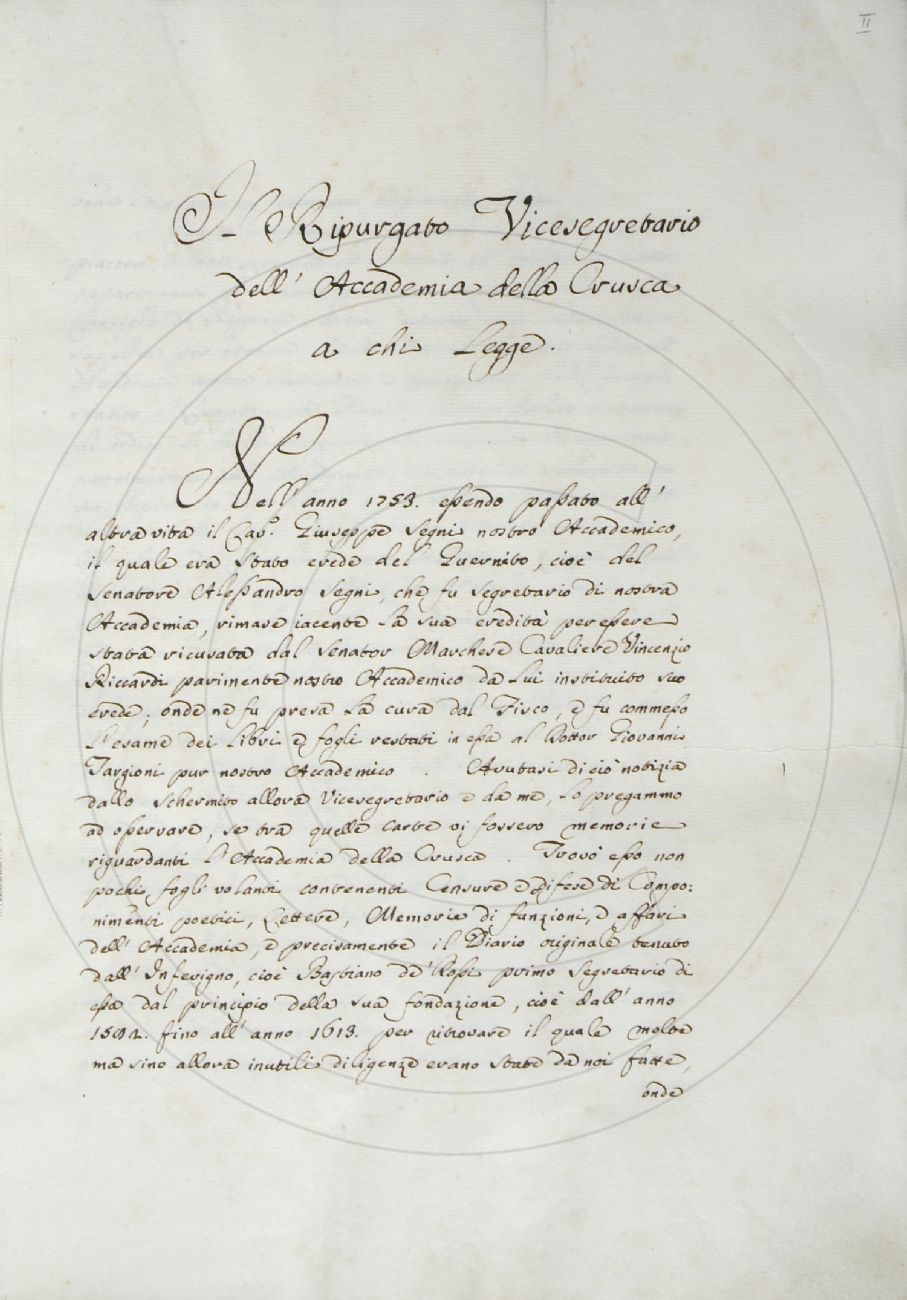 II
Il Ripurgato Vicesegretario
dell' Accademia della Crusca
a chi Legge.
Nell' anno 1753. essendo passato all'
altra vita il Cav.e Giuseppe Segni nostro Accademico,
il quale era stato erede del Guernito, cioè del
Senatore Alessandro Segni, che fu segretario di nostra
Accademia, rimase iacente la sua eredità per essere
stata ricusata dal Senator Marchese Cavaliere Vincenzio
Riccardi parimente nostro Accademico da lui instituito suo
erede; onde ne fu presa la cura dal Fisco, e fu commesso
l'esame dei Libri e fogli restati in essa al Dottor Giovanni
Targioni pur nostro Accademico. Avutasi di ciò notizia
dallo Schermito allora Vicesegretario e da me, lo pregammo
ad osservare, se tra quelle carte vi fossero memorie
riguardanti l'Accademia della Crusca. Trovò esso non
pochi fogli volanti contenenti Censure e difese di Compo:
nimenti poetici, Lettere, Memorie di funzioni, e affari
dell' Accademia, e precisamente il Diario originale tenuto
dall' Inferigno, cioè Bastiano de' Rossi primo Segretario di
essa dal principio della sua fondazione, cioè dall' anno
fino all' anno 1613. per ritrovare il quale molte
ma sino allora inutili diligenze erano state da noi fatte,
onde